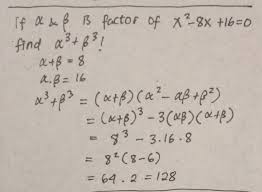 If α & β is factor of x²-8x+16=0
find α³+β³!
α+β = 8
α.β = 16
α³+β³ = (α+β)(α²-αβ+β²)
= (α+β)³-3(αβ)(α+β)
= 8³-3.16.8
= 8²(8-6)
= 64.2 = 128